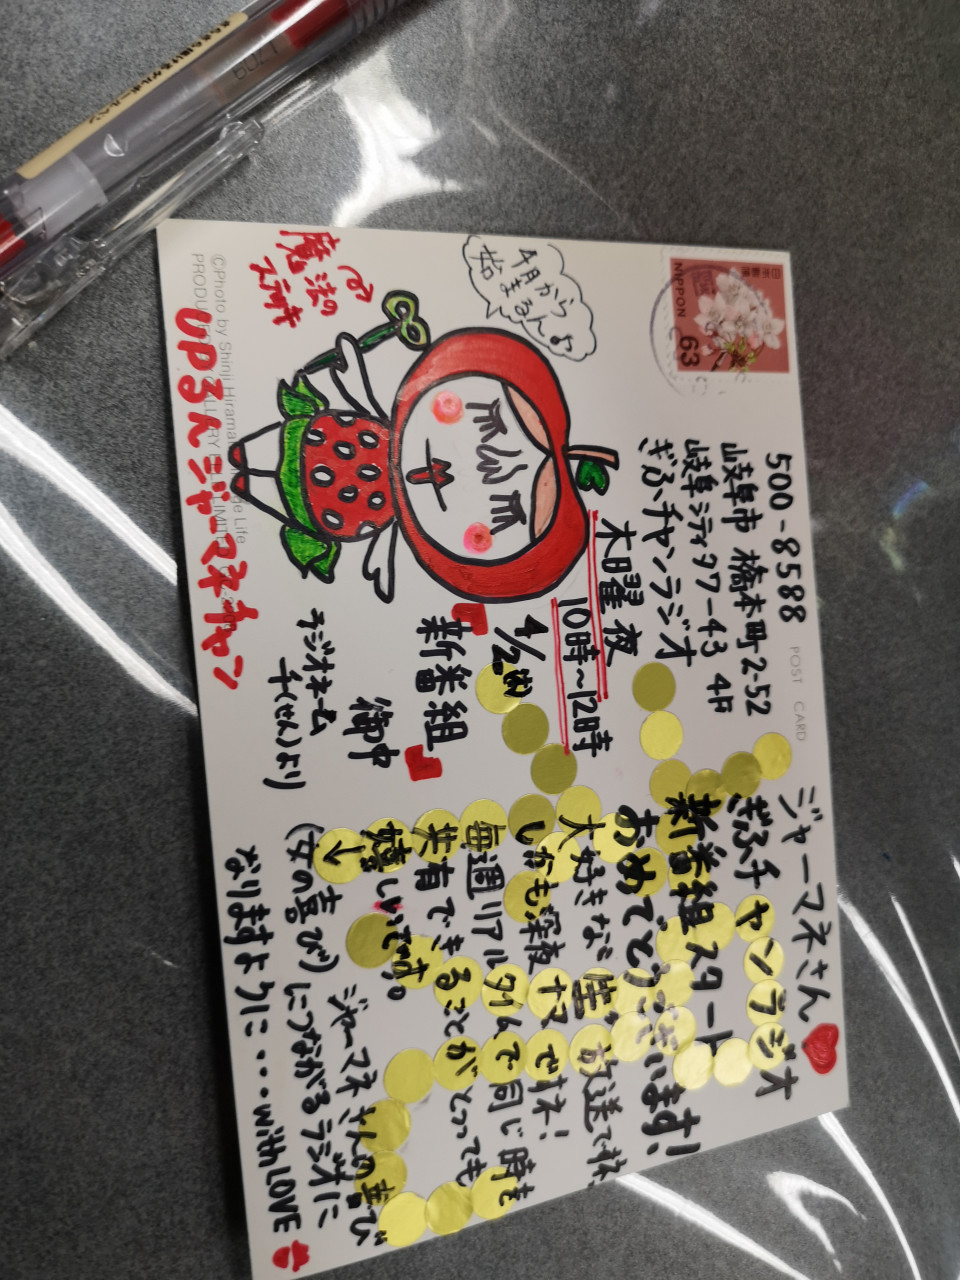 日本郵便
NIPPON
63
POST CARD
500-8588
岐阜市 橋本町2-52
岐阜シティタワー43 4F
ぎふチャンラジオ
木曜夜
10時〜12時
4/2㈭
『新番組』
御中
ラジオネーム
千(せん)より
4月から
始まるんよ
魔法の
ステッキ
UPるんジャーマネチャン
©Photo by Shinji
ジャーマネさん
ぎふチャンラジオ
新番組スタート
おめでとうございます!
大好きな"生"放送で
しかも深夜ナマですネ!
毎週リアルタイムで同じ時を
共有できることがとっても
嬉しいです。
ジャーマネさんの喜び
↓
(女の喜び)につながるラジオに
なりますように・・・with LOVE